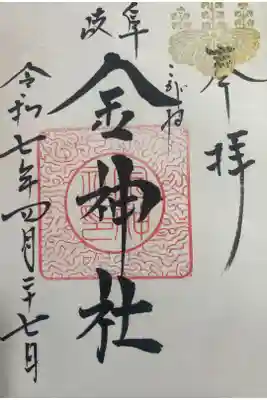 奉拝
岐阜
こがね
金神社
令和七年四月二十七日